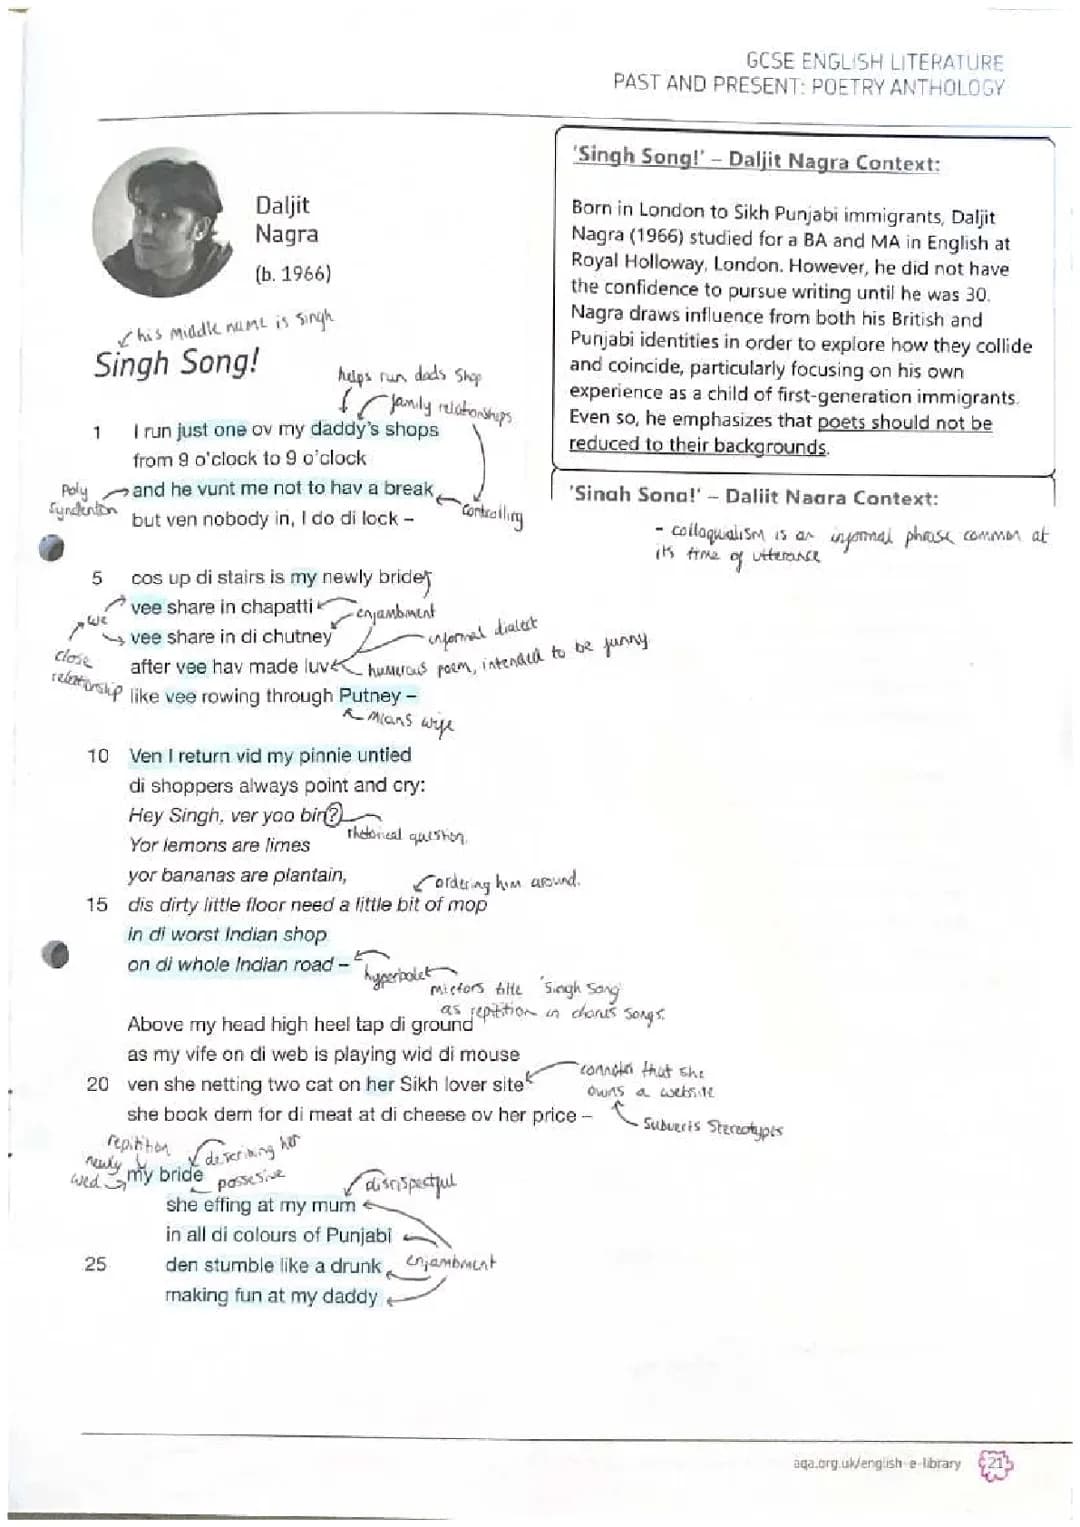 GCSE ENGLISH LITERATURE
PAST AND PRESENT: POETRY ANTHOLOGY
Daljit
Nagra
(b. 1966)
'Singh Song!' – Daljit Nagra Context:
Born in London to Sikh Punjabi immigrants, Daljit
Nagra (1966) studied for a BA and MA in English at
Royal Holloway, London. However, he did not have
the confidence to pursue writing until he was 30.
Nagra draws influence from both his British and
Punjabi identities in order to explore how they collide
and coincide, particularly focusing on his own
experience as a child of first-generation immigrants.
Even so, he emphasizes that poets should not be
reduced to their backgrounds.
'Singh Song!' – Daljit Nagra Context:
- colloquialism is an informal phrase common at
its time of utterance
his middle name is Singh
Singh Song!
helps run dads shop
family relationships
1 I run just one ov my daddy's shops
from 9 o'clock to 9 o'clock
Poly
syndenton
and he vunt me not to hav a break
controlling
but ven nobody in, I do di lock –
5 cos up di stairs is my newly bride
vee share in chapatti
enjambment
we
vee share in di chutney
informal dialect
close
relationship
after vee hav made luv
humerous poem, intended to be funny
like vee rowing through Putney –
means wife
10 Ven I return vid my pinnie untied
di shoppers always point and cry:
Hey Singh, ver yoo bin?
rhetorical question.
Yor lemons are limes
yor bananas are plantain,
ordering him around.
15 dis dirty little floor need a little bit of mop
in di worst Indian shop
on di whole Indian road –
hyperbole
mirrors title 'Singh Song'
as repitition in chorus songs.
Above my head high heel tap di ground
as my vife on di web is playing wid di mouse
connotes that she
owns a website
20 ven she netting two cat on her Sikh lover site
she book dem for di meat at di cheese ov her price –
Subverts Stereotypes
repitition
newly
wed
describing her
my bride
possesive
disrispectful
she effing at my mum
in all di colours of Punjabi
enjambment
25 den stumble like a drunk
making fun at my daddy
aqa.org.uk/english-e-library
21